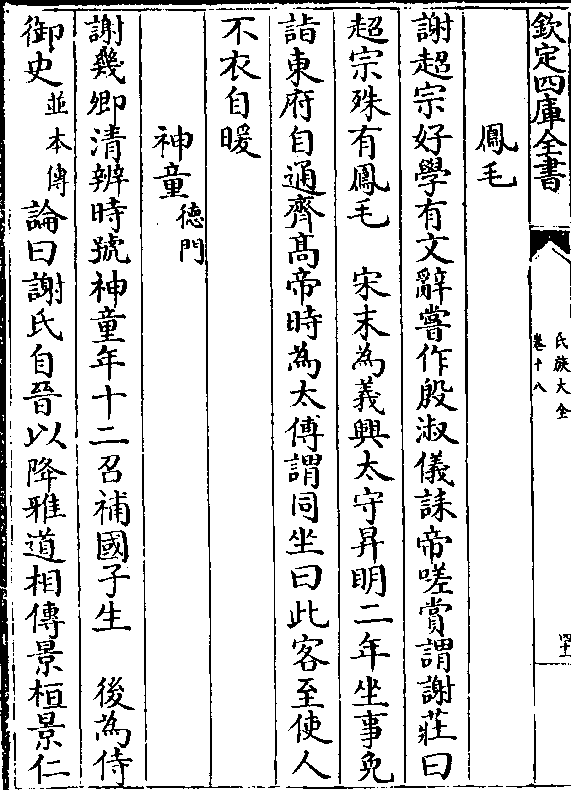 欽定四庫全書
氏族大全
卷十八
四十一
鳳毛
謝超宗好學有文辭嘗作殷淑儀誄帝嗟賞謂謝莊曰
超宗殊有鳳毛　宋末為義興太守昇明二年坐事免
詣東府自通齊髙帝時為太傅謂同坐曰此客至使人
不衣自暖
神童德門
謝幾卿清辨時號神童年十二召補國子生　後為侍
御史並本傳論曰謝氏自晉以降雅道相傳景桓景仁